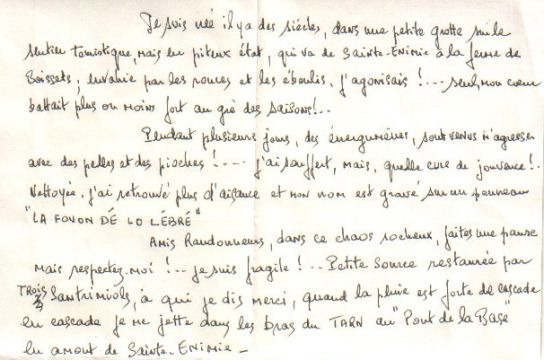 Je suis né il y a des siècles, dans une petite grotte sur le
sentier touristique, mais en piteux état, qui va de Sainte-Enimie à la ferme de
Boissets ; envahie par les ronces et les éboulis, j'agonisais !... seul, mon coeur
battait plus ou moins fort au gré des saisons !..
Pendant plusieurs jours, des énergumènes, sont venus m'agresser
avec des pelles et des pioches !.... j'ai souffert, mais, quelle cure de jouvence !.
Nettoyée, j'ai retrouvé plus d'aisance et mon nom est gravé sur un panneau
"LA FOUON DÉ LO LÈBRÉ"
Amis Randonneurs, dans ce chaos rocheux, faites une pause
mais respectez-moi !... je suis fragile !.. Petite source restaurée par
TROIS Santrimiols, à qui je dis merci, quand la pluie est forte de cascade
en cascade je me jette dans les bras du TARN au "Pont de la Base"
en amont de Sainte-Enimie -